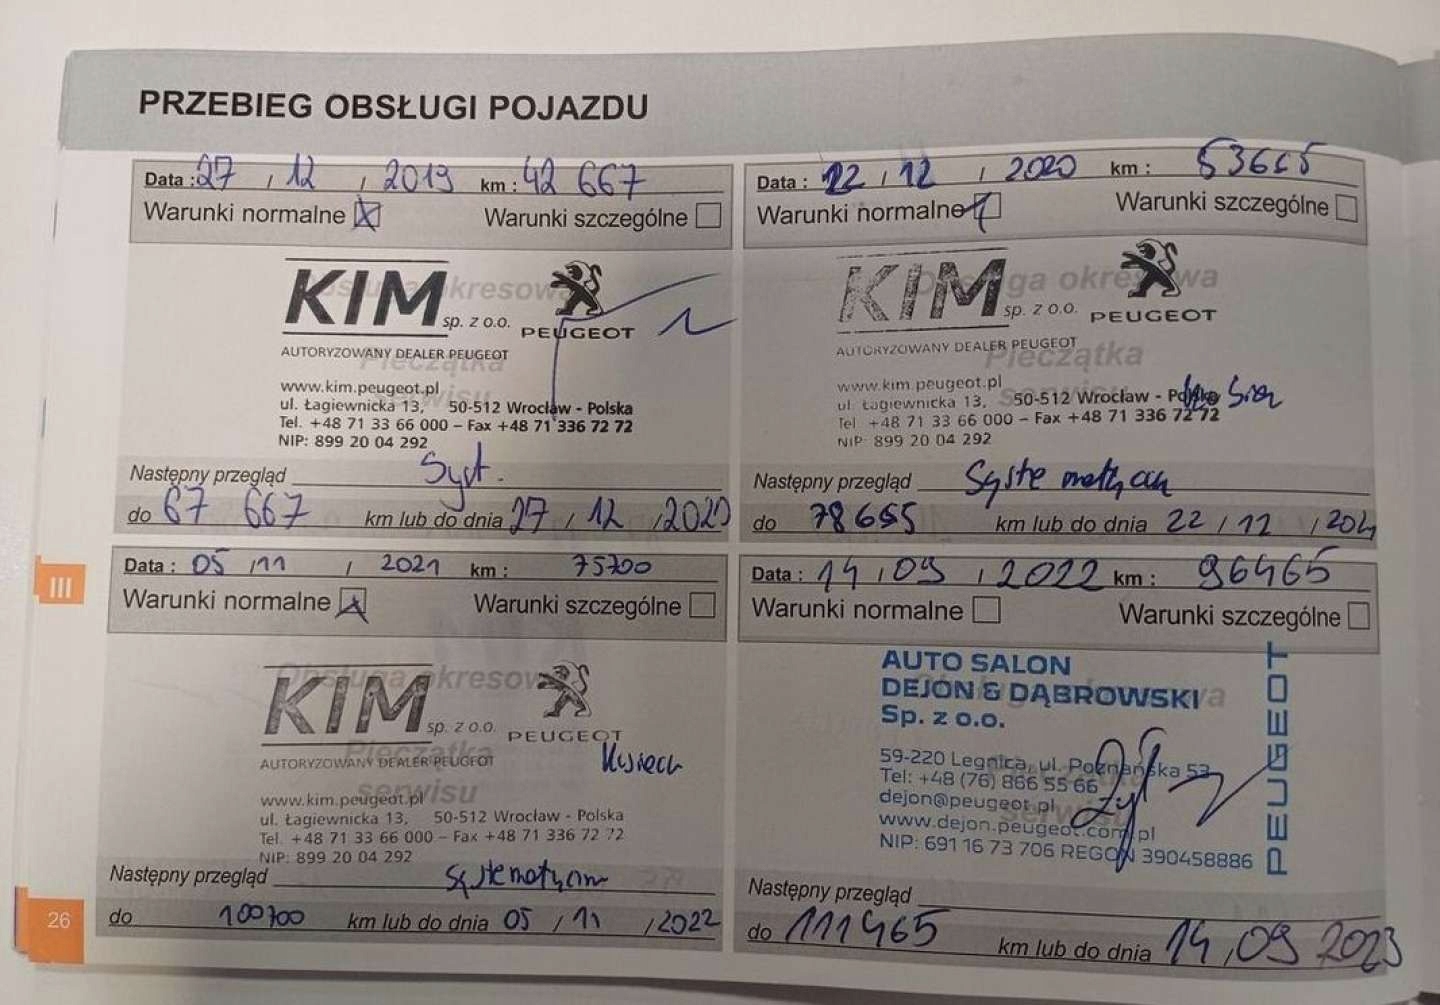 PRZEBIEG OBSŁUGI POJAZDU
Data : 27 / 12 / 2019 km : 42 667
Warunki normalne Warunki szczególne
Obsługa okresowa
KIM sp. z o.o. PEUGEOT
AUTORYZOWANY DEALER PEUGEOT
Pieczątka
serwisu
www.kim.peugeot.pl
ul. Łagiewnicka 13, 50-512 Wrocław - Polska
Tel. +48 71 33 66 000 – Fax +48 71 336 72 72
NIP: 899 20 04 292
Następny przegląd Syst.
do 67 667 km lub do dnia 27 / 12 / 2020
Data : 22 / 12 / 2020 km : 53655
Warunki normalne Warunki szczególne
Obsługa okresowa
KIM sp. z o.o. PEUGEOT
AUTORYZOWANY DEALER PEUGEOT
Pieczątka
serwisu
www.kim.peugeot.pl
ul. Łagiewnicka 13, 50-512 Wrocław - Polska
Tel +48 71 33 66 000 – Fax +48 71 336 72 72
NIP: 899 20 04 292
Następny przegląd
do 78655 km lub do dnia 22 / 12 / 2021
III
Data : 05 / 11 / 2021 km : 75700
Warunki normalne Warunki szczególne
Obsługa okresowa
KIM sp. z o.o. PEUGEOT
AUTORYZOWANY DEALER PEUGEOT
Pieczątka
serwisu
www.kim.peugeot.pl
ul. Łagiewnicka 13, 50-512 Wrocław - Polska
Tel. +48 71 33 66 000 – Fax +48 71 336 72 72
NIP: 899 20 04 292
Następny przegląd
do 100700 km lub do dnia 05 / 11 / 2022
Data : 14 / 09 / 2022 km : 96465
Warunki normalne Warunki szczególne
AUTO SALON
DEJON & DĄBROWSKI
Sp. z o.o.
59-220 Legnica, ul. Poznańska 53
Tel: +48 (76) 866 55 66
dejon@peugeot.pl
www.dejon.peugeot.com.pl
NIP: 691 16 73 706 REGON 390458886
PEUGEOT
Następny przegląd
do 111465 km lub do dnia 14 / 09 2023
26